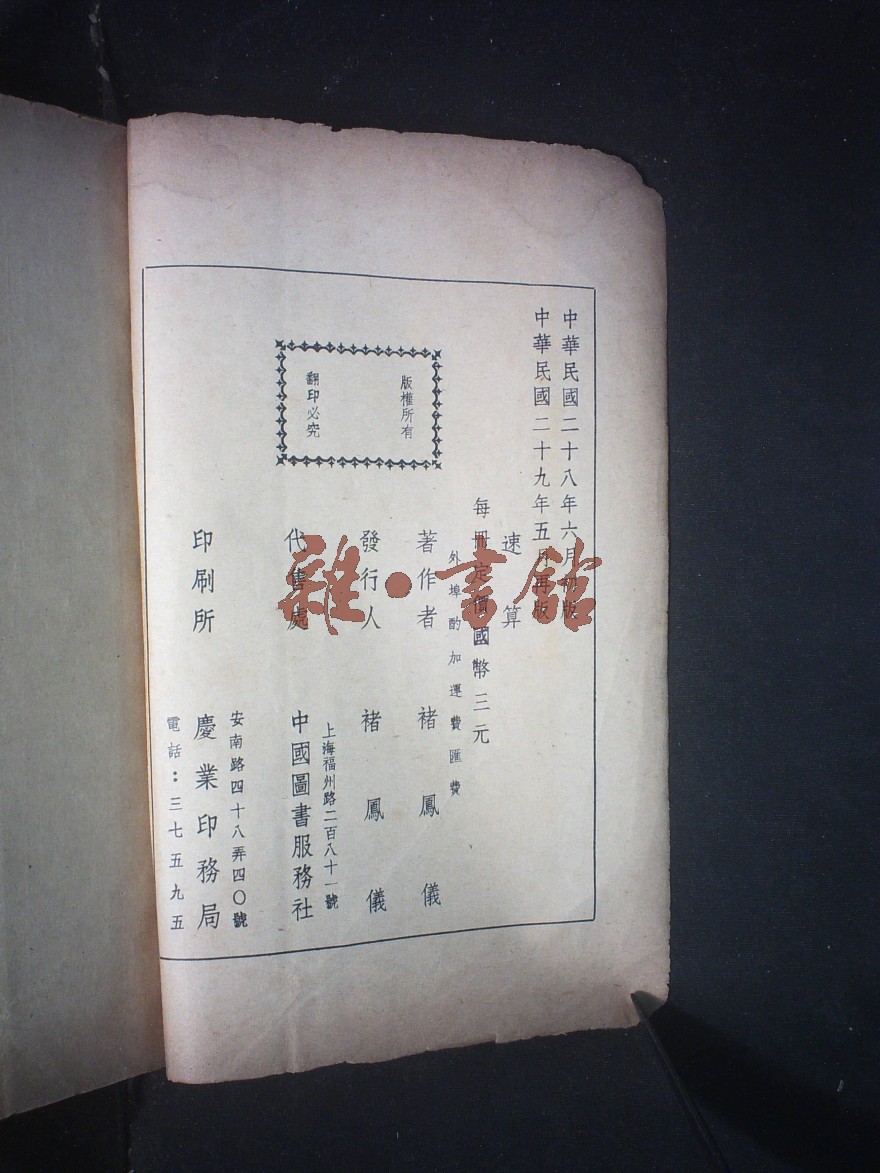 中華民國二十八年六月初版
中華民國二十九年五月再版
速算
每冊定價國幣三元
外埠酌加運費匯費
版權所有
翻印必究
著作者 褚鳳儀
發行人 褚鳳儀
代售處 中國圖書服務社
上海福州路二百八十一號
印刷所 慶業印務局
安南路四十八弄四〇號
電話：三七五九五
雜·書館